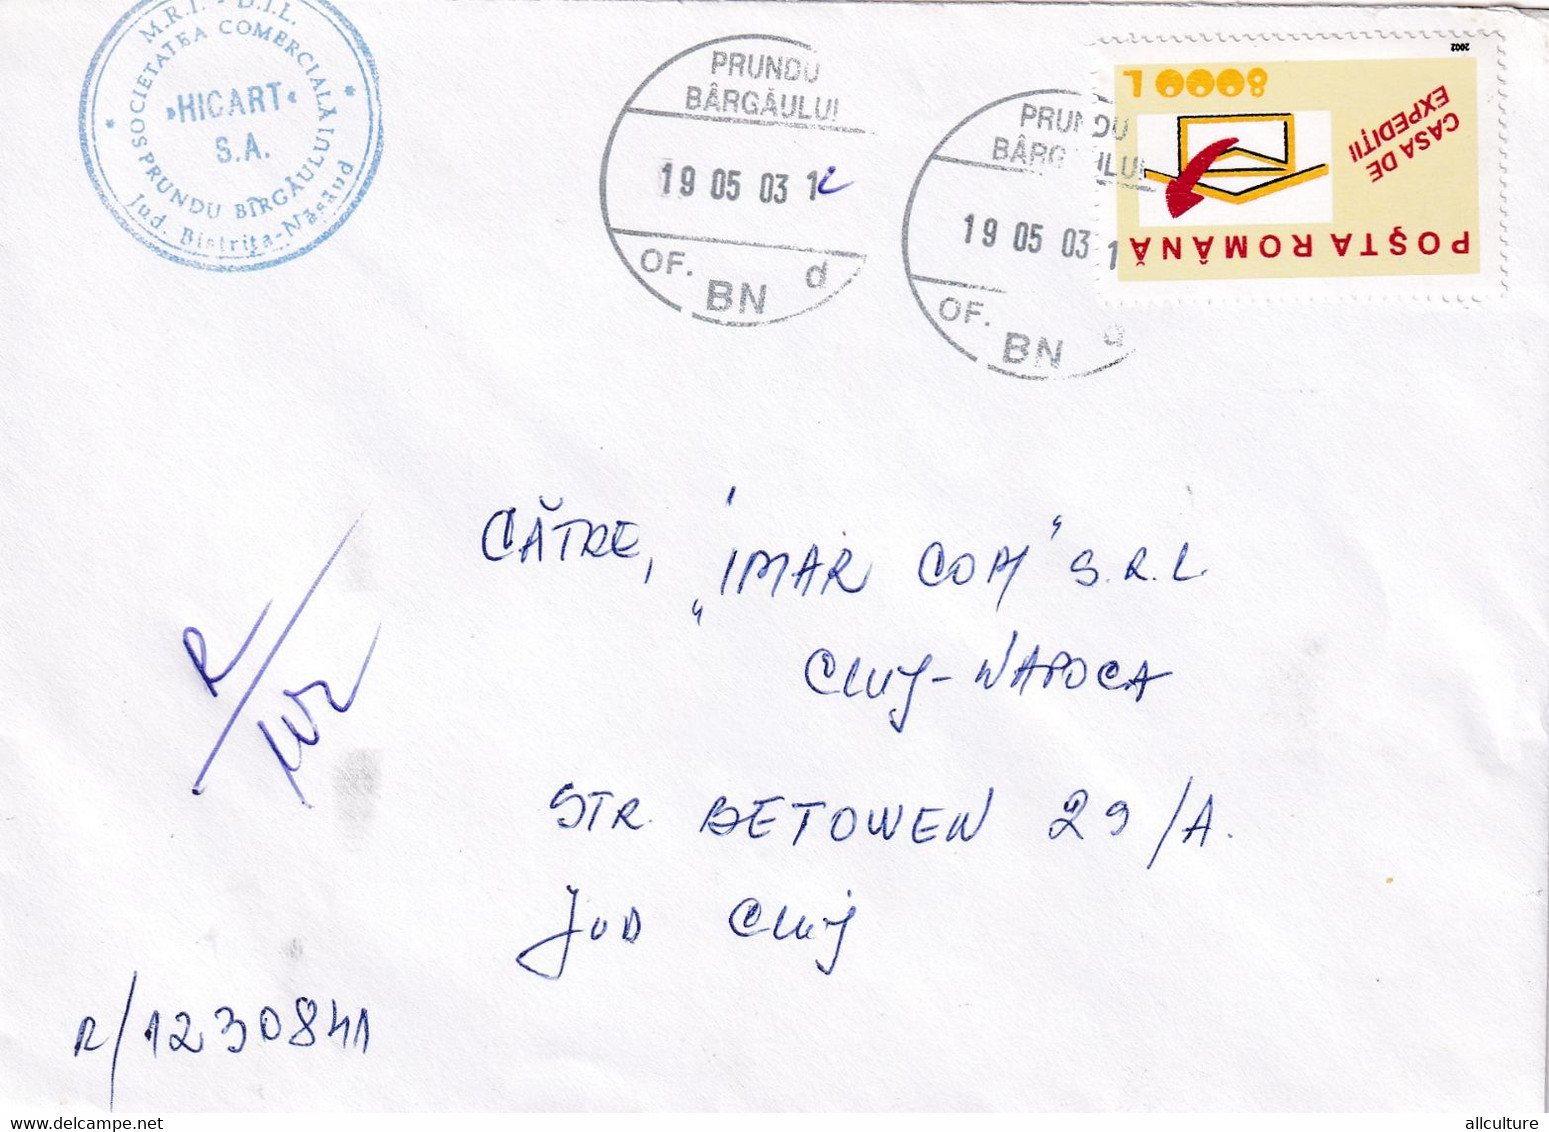 M.R.I. - D.I.L.
* SOCIETATEA COMERCIALĂ *
»HICART«
S.A.
PRUNDU BÎRGĂULUI
Jud. Bistrița-Năsăud
PRUNDU
BÂRGĂULUI
19 05 03 12
OF. BN d
PRUNDU
BÂRGĂULUI
19 05 03 1
OF. BN d
2002
8000 L
CASA DE
EXPEDIȚII
POȘTA ROMÂNĂ
CĂTRE, "IMAR COM" S.R.L.
CLUJ-NAPOCA
STR. BETOWEN 29/A.
JUD CLUJ
R/1230841
allculture